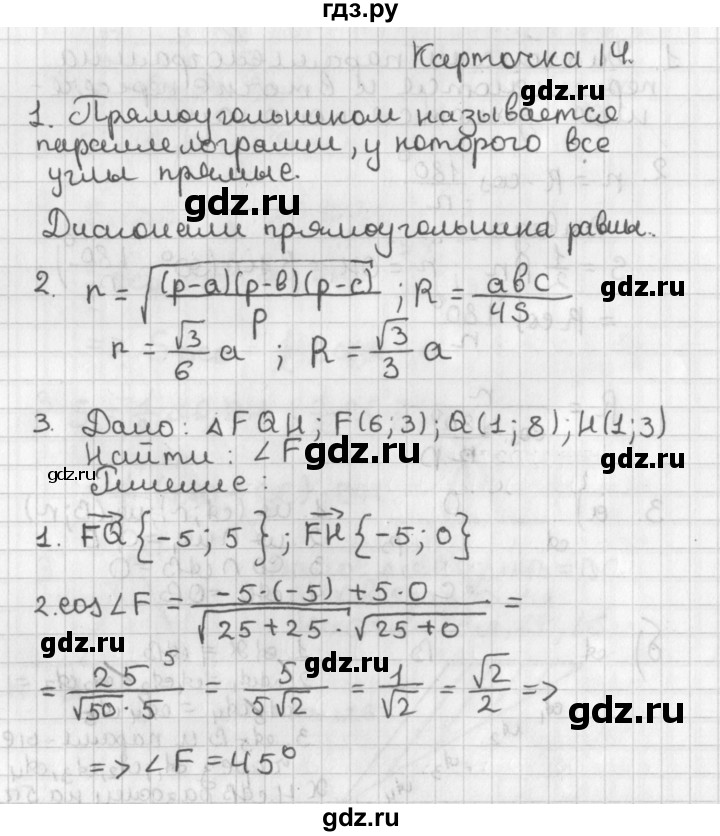 гдз.ру
Карточка 14.
gdz.ru
1. Прямоугольником называется
параллелограмм, у которого все
углы прямые.
gdz.ru
Диагонали прямоугольника равны.
2. r = √((p-a)(p-b)(p-c)/p) ; R = abc/4S
gdz.ru
r = √3/6 a ; R = √3/3 a
3. Дано: △FQH; F(6;3); Q(1;8); H(1;3)
Найти: ∠F
gdz.ru
gdz.ru
gdz.ru
Решение:
1. FQ{-5; 5}; FH{-5; 0}
2. cos∠F = (-5·(-5) + 5·0)/(√(25+25) · √(25+0)) =
gdz.ru
gdz.ru
= 25 5/(√50·5) = 5/(5√2) = 1/√2 = √2/2 =>
gdz.ru
=> ∠F = 45°
gdz.ru